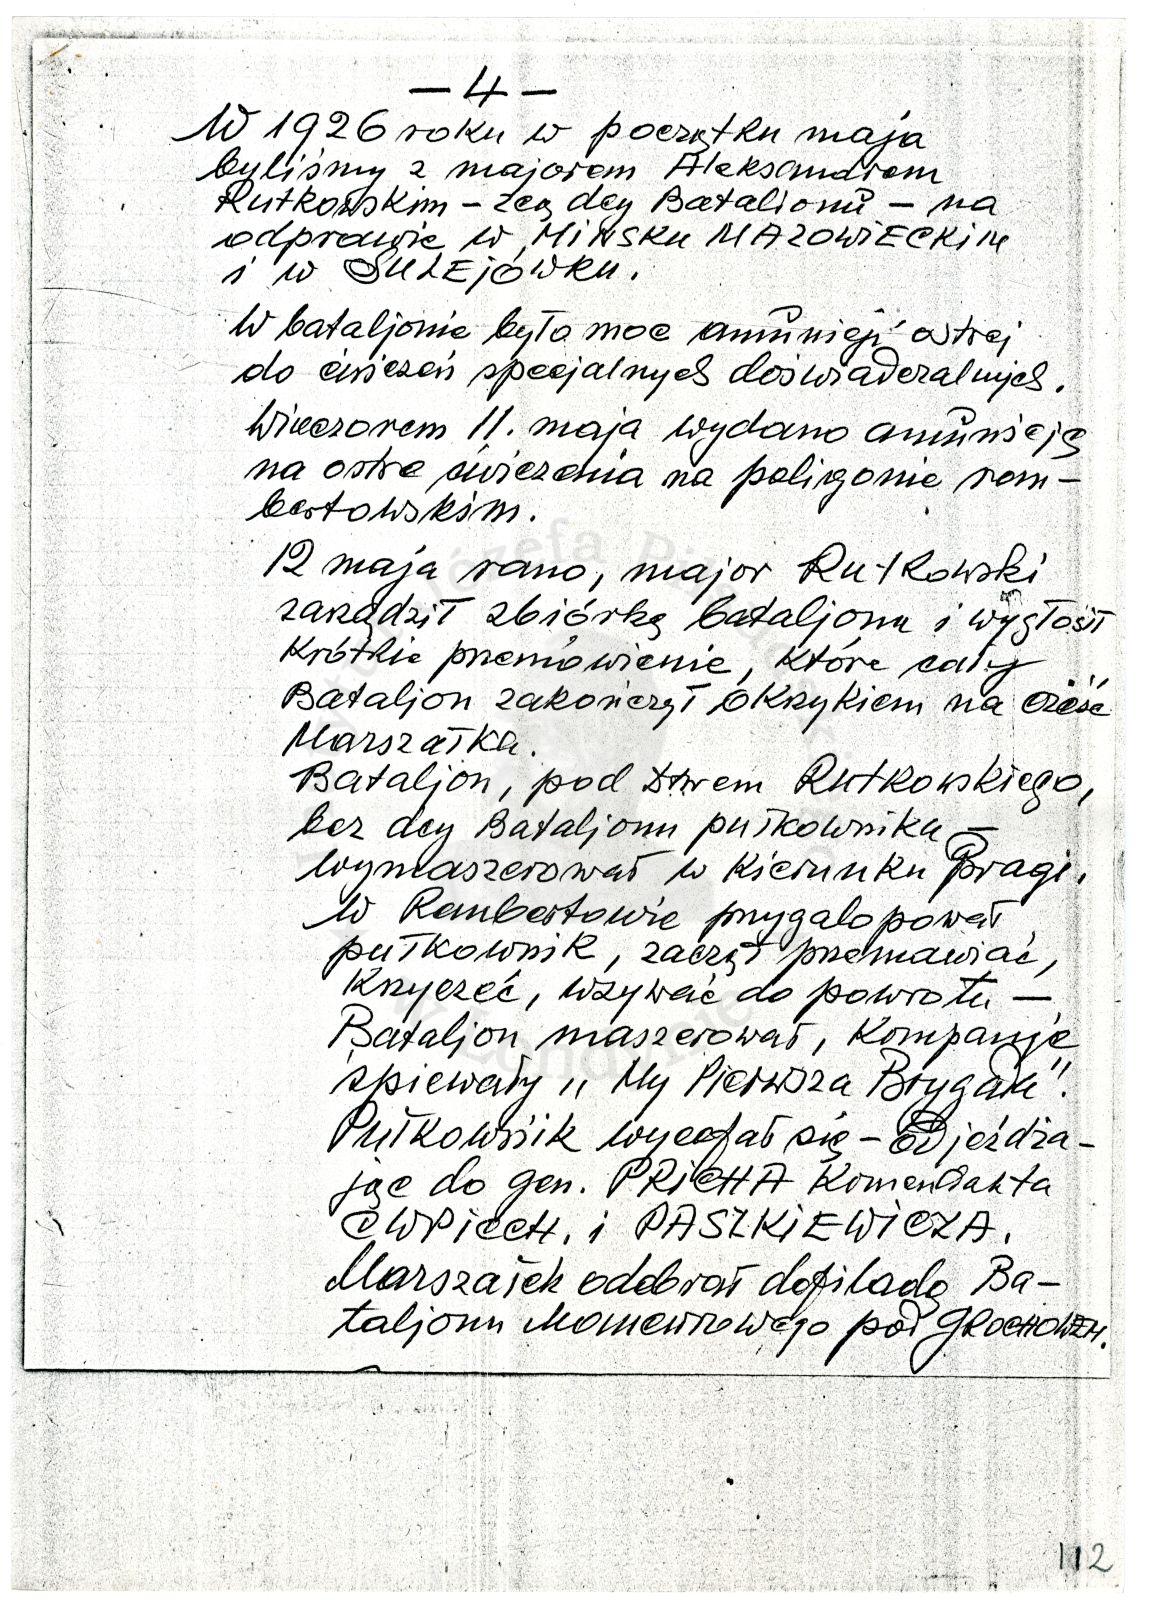 — 4 —
W 1926 roku w początku maja
byliśmy z majorem Aleksandrem
Rutkowskim – zcą dcy Batalionu – na
odprawie w MIŃSKU MAZOWIECKIM
i w SULEJÓWKU.
W bataljonie było moc amunicji ostrej
do ćwiczeń specjalnych doświadczalnych.
Wieczorem 11. maja wydano amunicję
na ostre ćwiczenia na poligonie rem–
bertowskim.
12 maja rano, major Rutkowski
zarządził zbiórkę bataljonu i wygłosił
krótkie przemówienie, które cały
Bataljon zakończył okrzykiem na cześć
Marszałka.
Bataljon, pod dtwem Rutkowskiego,
bez dcy Bataljonu pułkownika –
wymaszerował w kierunku Pragi.
W Rembertowie przygalopował
pułkownik, zaczął przemawiać,
krzyczeć, wzywać do powrotu –
Bataljon maszerował, kompanje
śpiewały „My Pierwsza Brygada".
Pułkownik wycofał się – odjeżdża–
jąc do gen. PRICHA Komendanta
CWPiech. i PASZKIEWICZA.
Marszałek odebrał defiladę Ba–
taljonu Manewrowego pod GROCHOWEM.
112